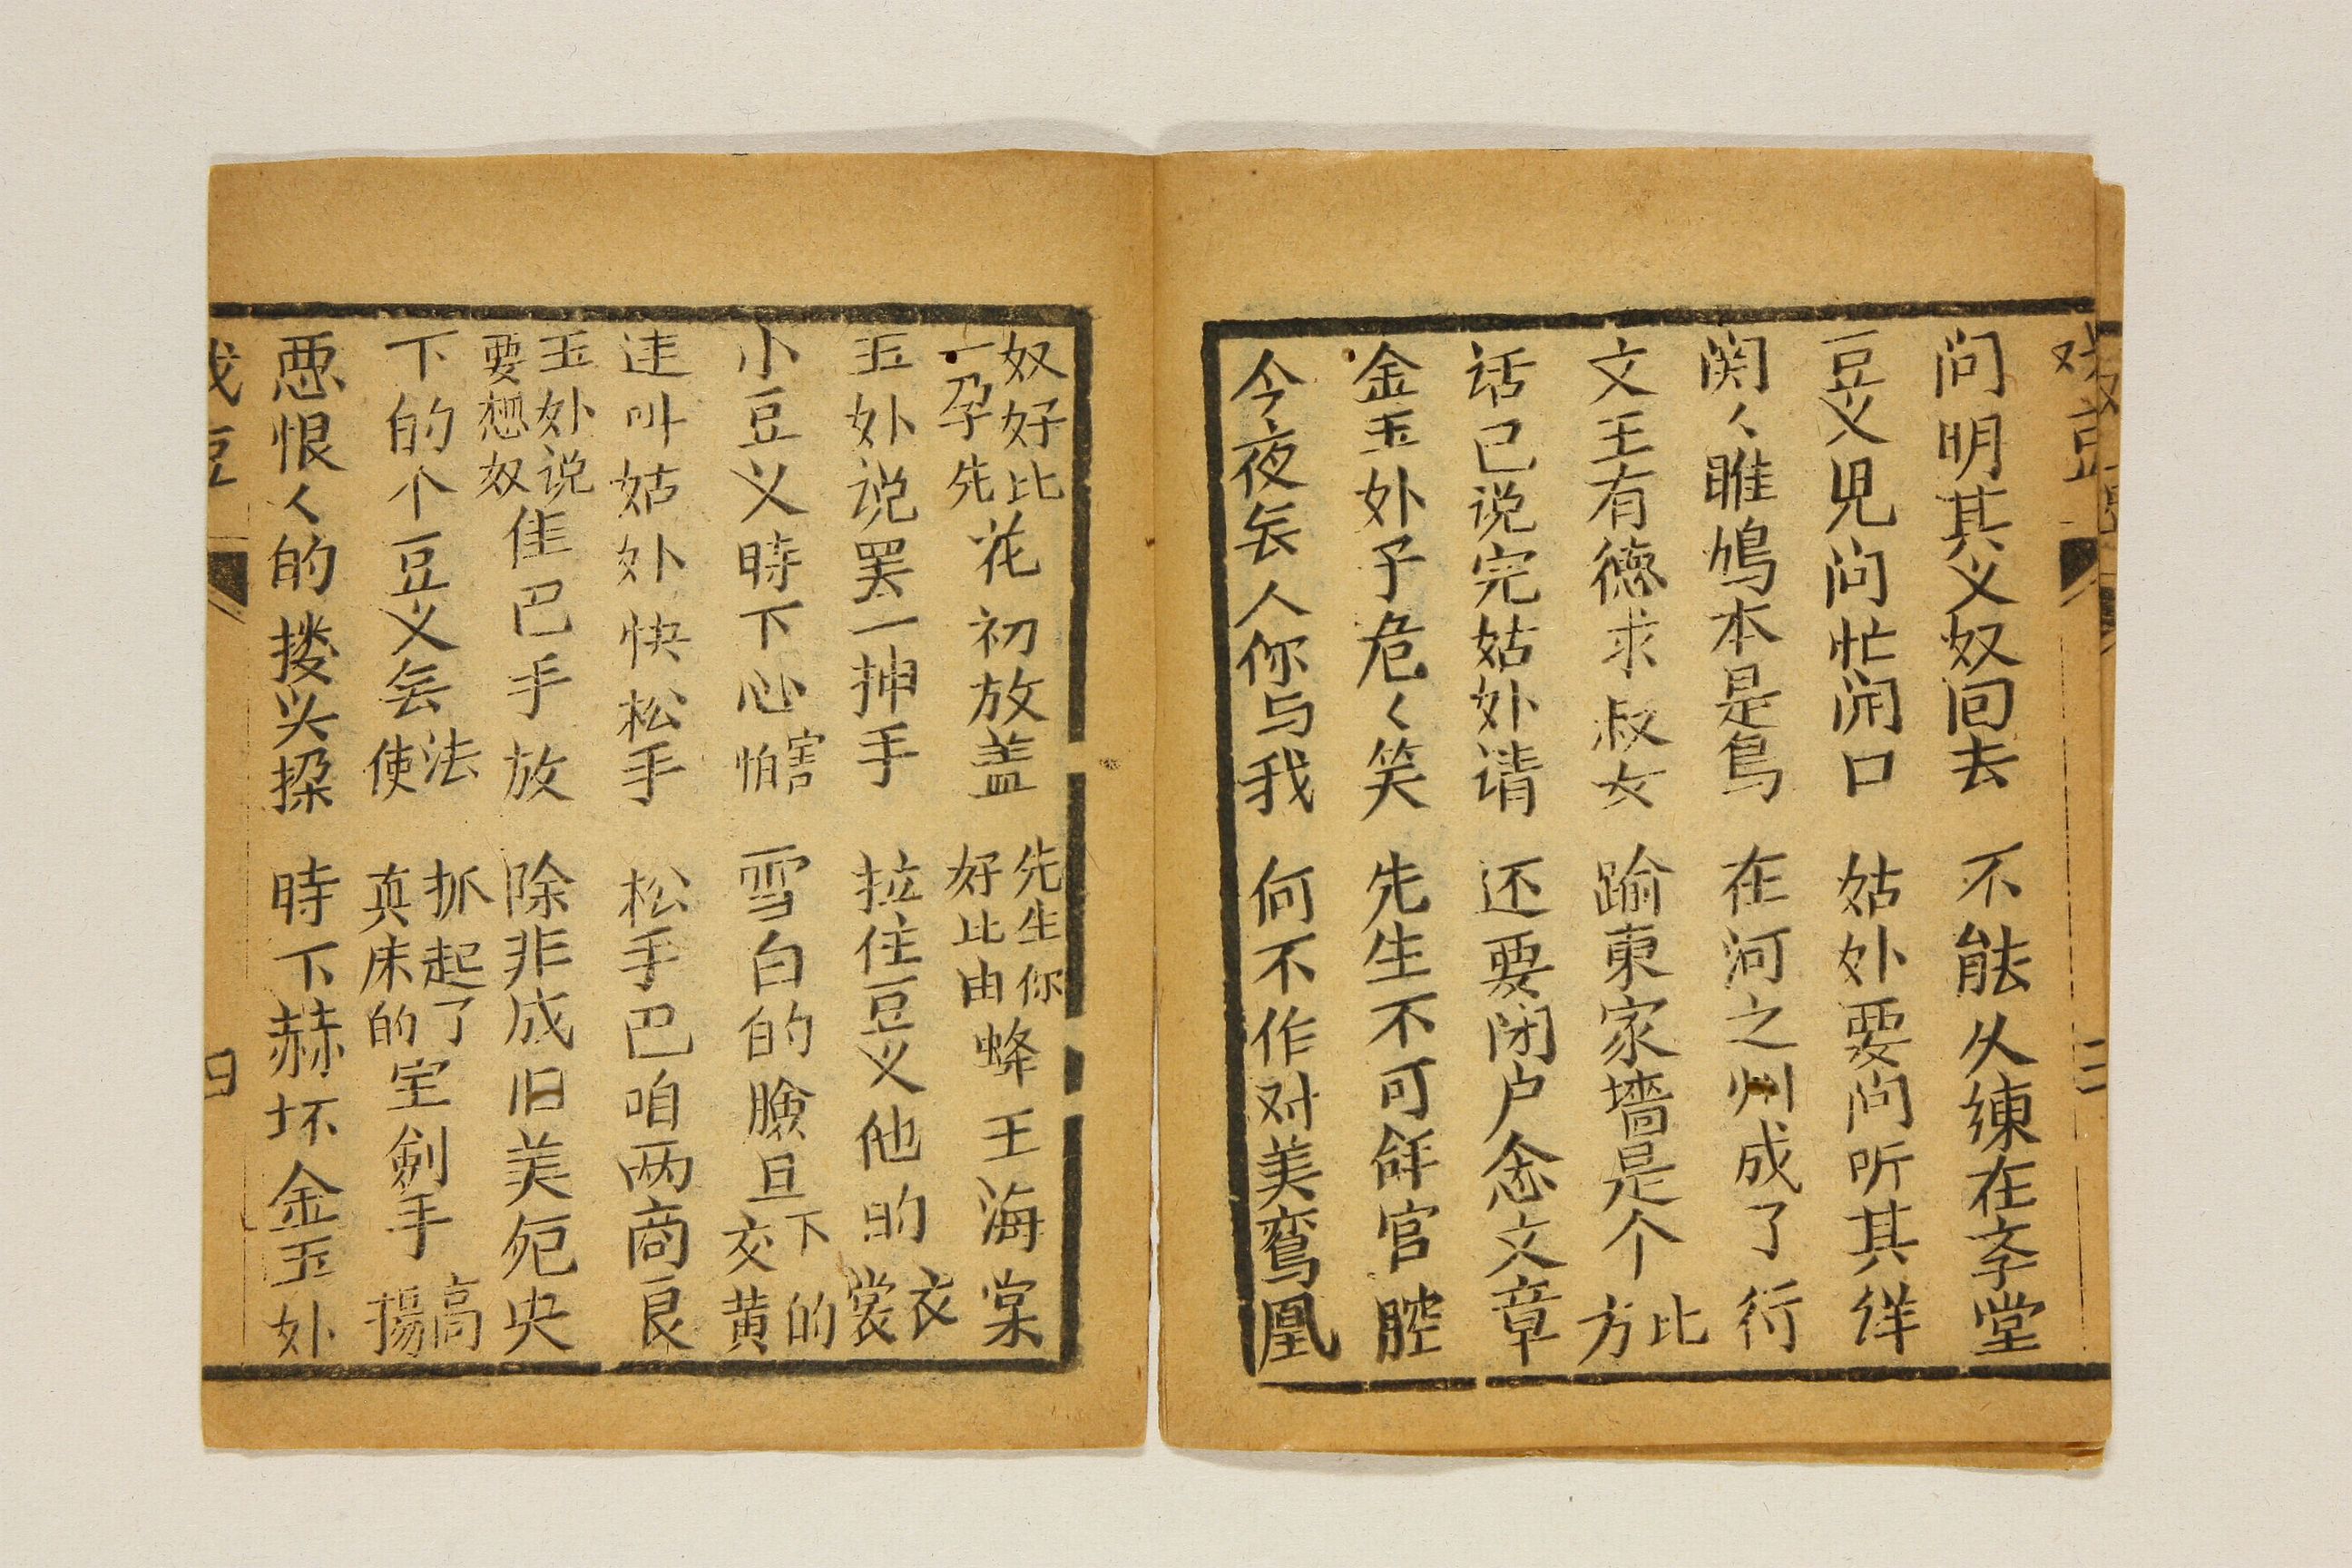 戏豆 三
问明其义奴回去 不能久練在斈堂
豆义児问忙開口 姑娘要问听其详
関々雎鳩本是鳥 在河之州成了行
文王有德求叔女 踰東家墻是个比方
话已说完姑娘请 还要闭户念文章
金玉娘子危々笑 先生不可觧官腔
今夜无人你与我 何不作对美鸾凰
奴好比一孕先花初放盖 先生你好比由蜂王海棠
玉娘说罢一抻手 拉住豆义他的衣裳
小豆义時下心害怕 雪白的臉旦下的交黄
连叫姑娘快松手 松手巴咱两商良
玉娘说要想奴佳巴手放 除非成旧美夗央
下的个豆义无法使 抓起了真床的宝剑手高揚
恶恨々的搂头揉 時下赫坏金玉娘
戏豆 四